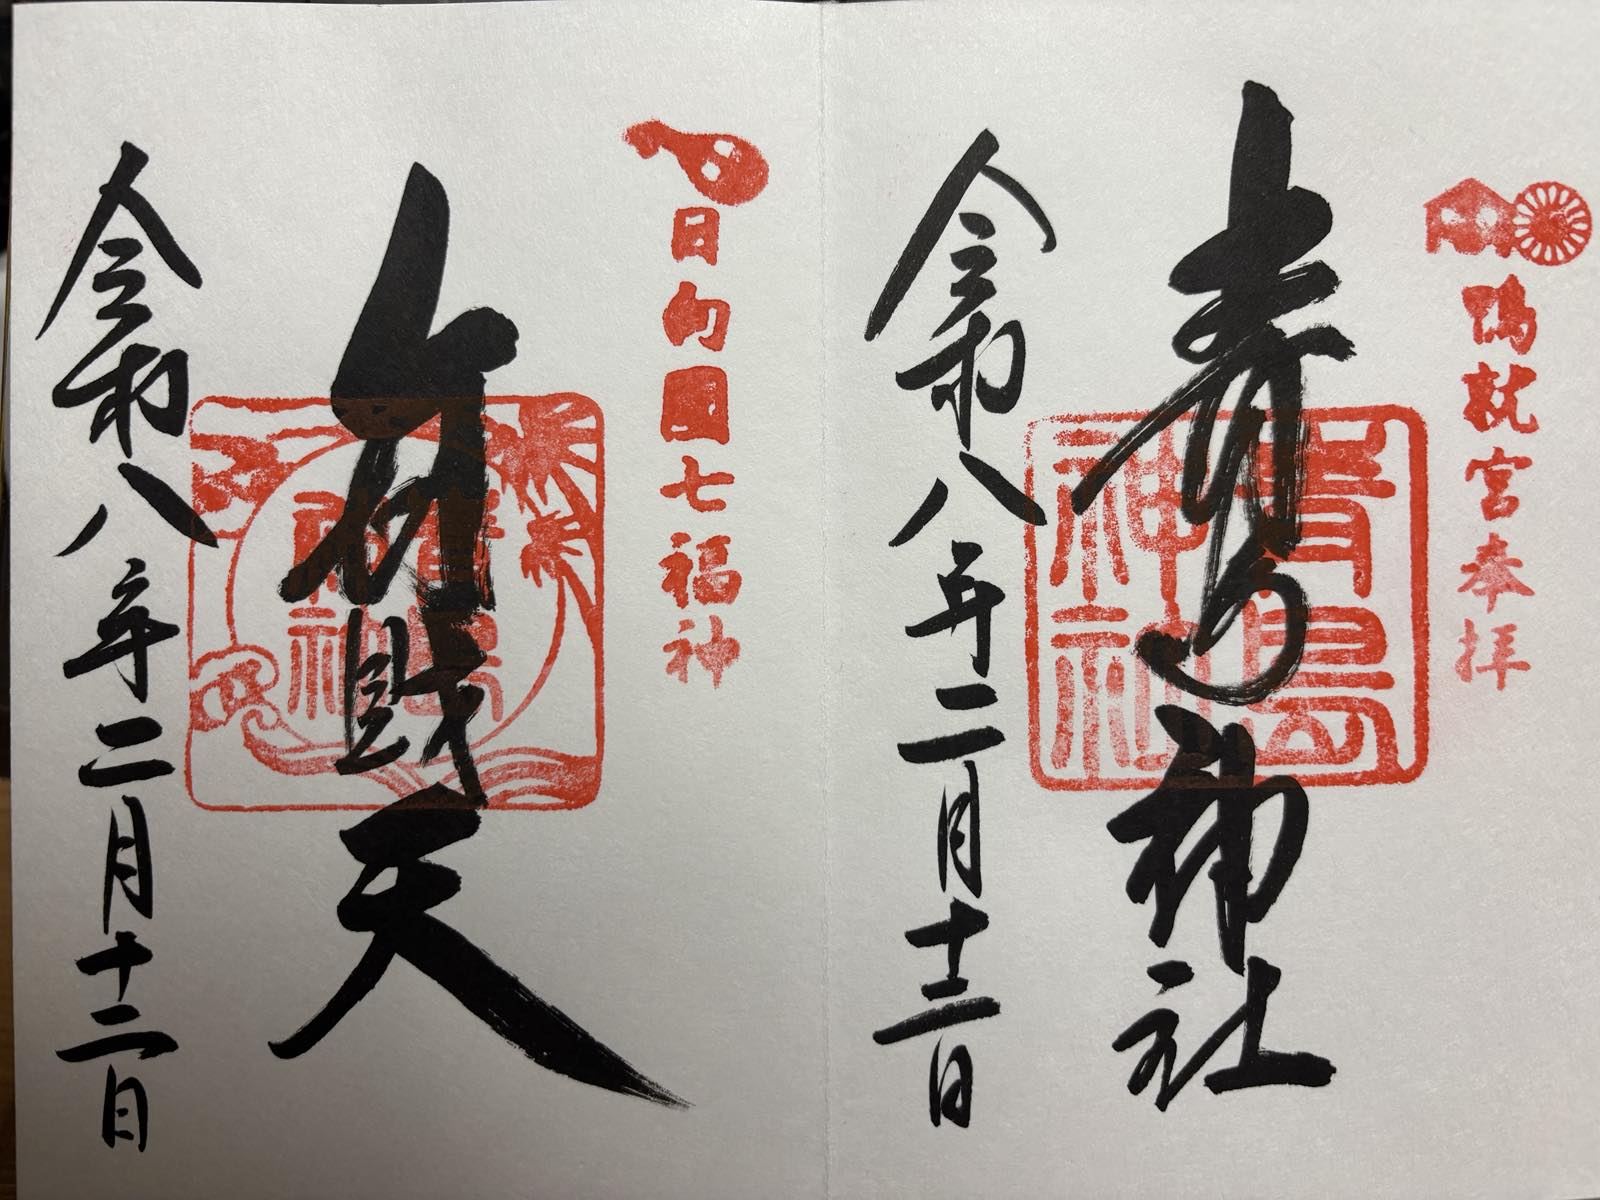 鴨就宮奉拝
青島神社
青島神社
令和八年二月十二日
日向國七福神
弁財天
青島神社
令和八年二月十二日